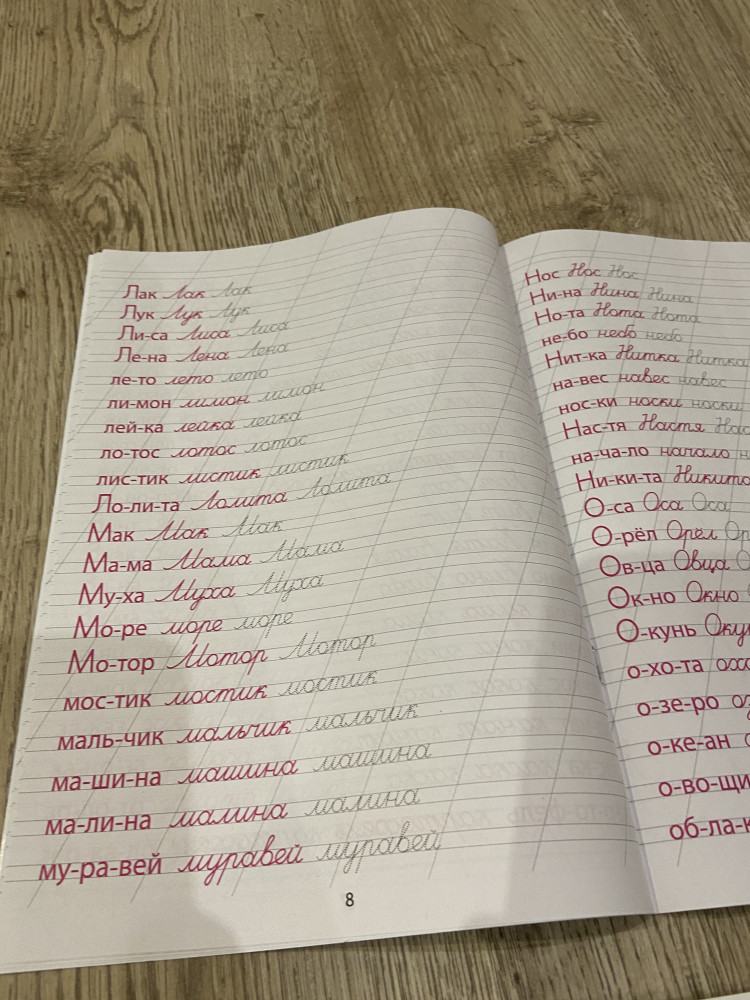 Лак Лак Лак
Лук Лук Лук
Ли-са Лиса Лиса
Ле-на Лена Лена
ле-то лето лето
ли-мон лимон лимон
лей-ка лейка лейка
ло-тос лотос лотос
лис-тик листик листик
Ло-ли-та Лолита Лолита
Мак Мак Мак
Ма-ма Мама Мама
Му-ха Муха Муха
Мо-ре море море
Мо-тор Мотор Мотор
мос-тик мостик мостик
маль-чик мальчик мальчик
ма-ши-на машина машина
ма-ли-на малина малина
му-ра-вей муравей муравей
8
Нос Нос Нос
Ни-на Нина Нина
Но-та Нота Нота
не-бо небо небо
Нит-ка Нитка Нитка
на-вес навес навес
нос-ки носки носки
Нас-тя Настя
на-ча-ло начало
Ни-ки-та
О-са Оса Оса
О-рёл Орёл
Ов-ца Овца
Ок-но Окно
О-кунь
о-хо-та
о-зе-ро
о-ке-ан